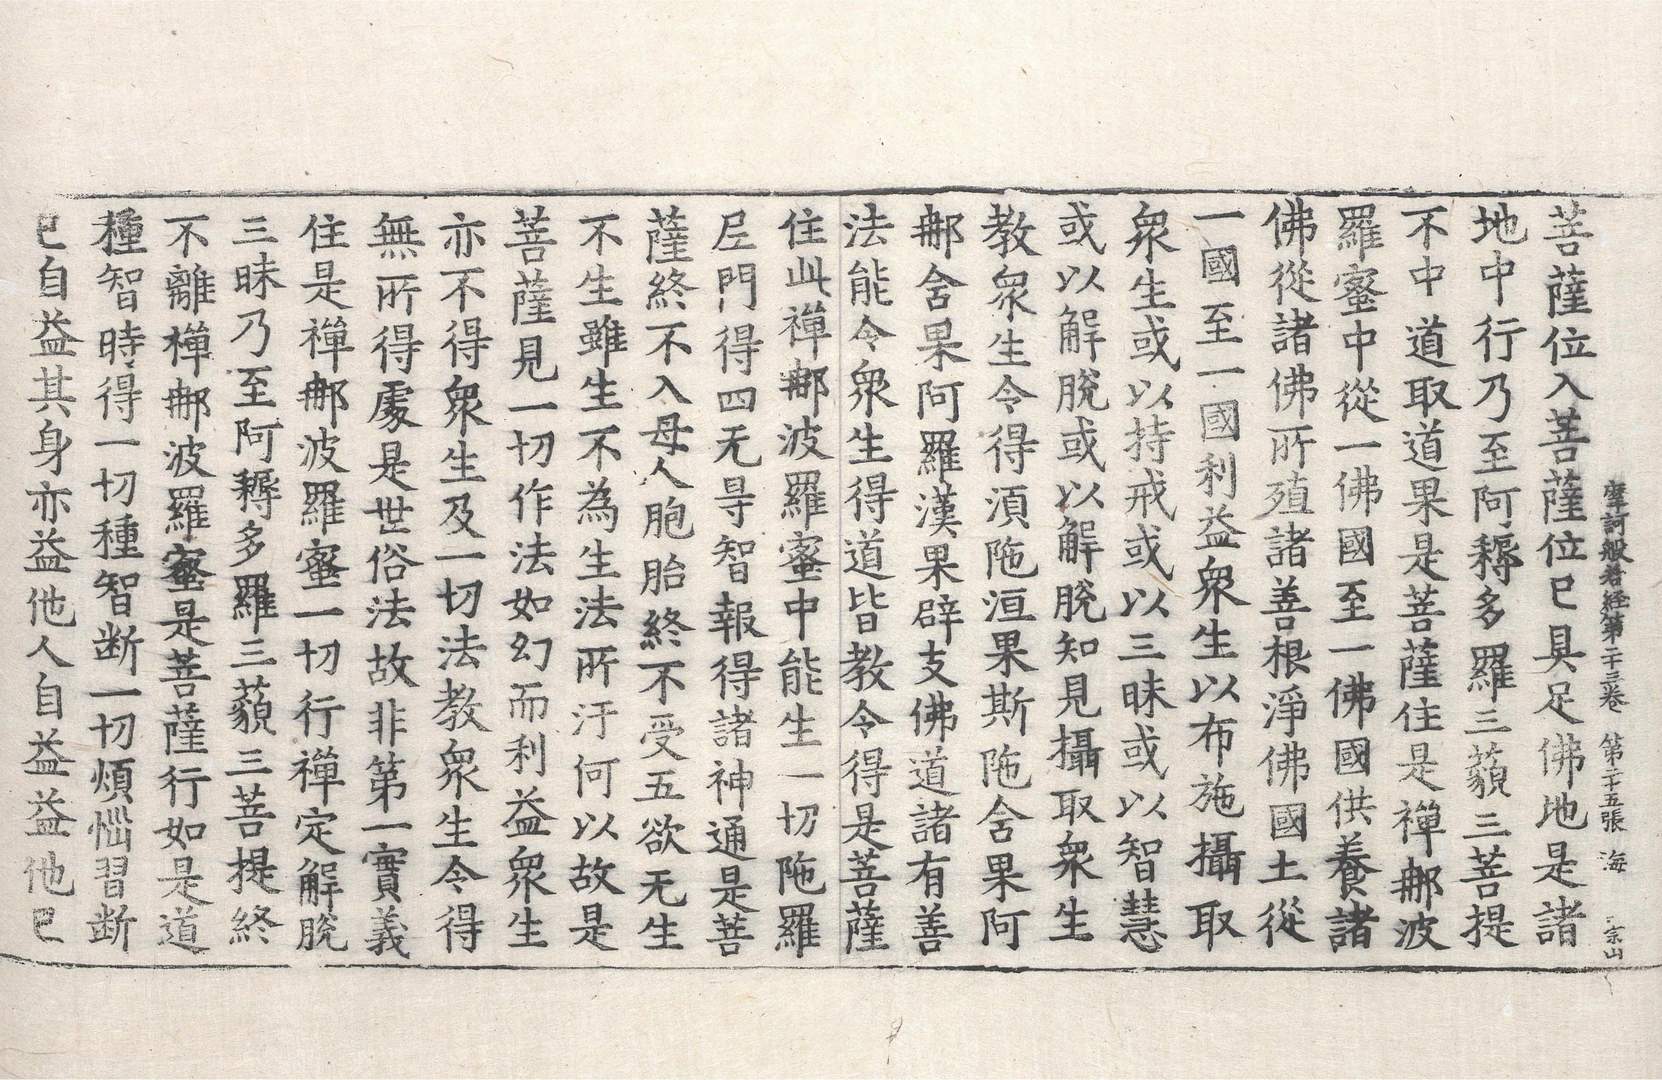 摩訶般若経第二十三卷 第二十五張 海 宗山
菩薩位入菩薩位已具足佛地是諸
地中行乃至阿耨多羅三藐三菩提
不中道取道果是菩薩住是禪那波
羅蜜中從一佛國至一佛國供養諸
佛從諸佛所殖諸善根淨佛國土從
一國至一國利益衆生以布施攝取
衆生或以持戒或以三昧或以智慧
或以解脫或以解脫知見攝取衆生
教衆生令得須陁洹果斯陁含果阿
那含果阿羅漢果辟支佛道諸有善
法能令衆生得道皆教令得是菩薩
住此禪那波羅蜜中能生一切陁羅
尼門得四无㝵智報得諸神通是菩
薩終不入母人胞胎終不受五欲无生
不生雖生不為生法所汙何以故是
菩薩見一切作法如幻而利益衆生
亦不得衆生及一切法教衆生令得
無所得處是世俗法故非第一實義
住是禪那波羅蜜一切行禪定解脫
三昧乃至阿耨多羅三藐三菩提終
不離禪那波羅蜜是菩薩行如是道
種智時得一切種智断一切煩惱習断
已自益其身亦益他人自益益他已